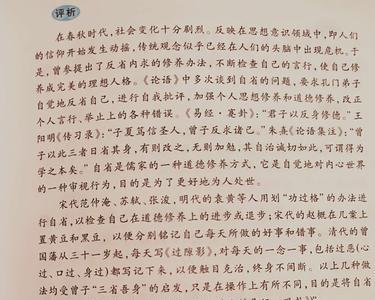 评析
在春秋时代，社会变化十分剧烈。反映在思想意识领域中，即人们
的信仰开始发生动摇，传统观念似乎已经在人们的头脑中出现危机。于
是，曾参提出了反省内求的修养办法，不断检查自己的言行，使自己修
养成完美的理想人格。《论语》中多次谈到自省的问题，要求孔门弟子
自觉地反省自己，进行自我批评，加强个人思想修养和道德修养，改正
个人言行、举止上的各种错误。《易经·蹇卦》：“君子以反身修德。”王
阳明《传习录》：“子夏笃信圣人，曾子反求诸己。”朱熹《论语集注》：“曾
子以此三者日省其身，有则改之，无则加勉，其自治诚切如此，可谓得为
学之本矣。”自省是儒家的一种道德修养方式，它是自觉地对内心世界
的一种审视行为，目的是为了更好地为人处世。
宋代范仲淹、苏轼、张浚，明代的袁黄等人用划“功过格”的办法进
行自省，以检查自己在道德修养上的进步或退步；宋代的赵概在几案上
置黄豆和黑豆，以便分别铭记自己每天所做的好事和错事。清代的曾
国藩从三十一岁起，每天写《过隙影》，对每天的一念一事，包括过恶(心
过、口过、身过)都写记下来，以便触目克治，终身不间断。以上几种做
法均受曾子“三省吾身”的启发，只是在操作上有所不同，目的是将自省